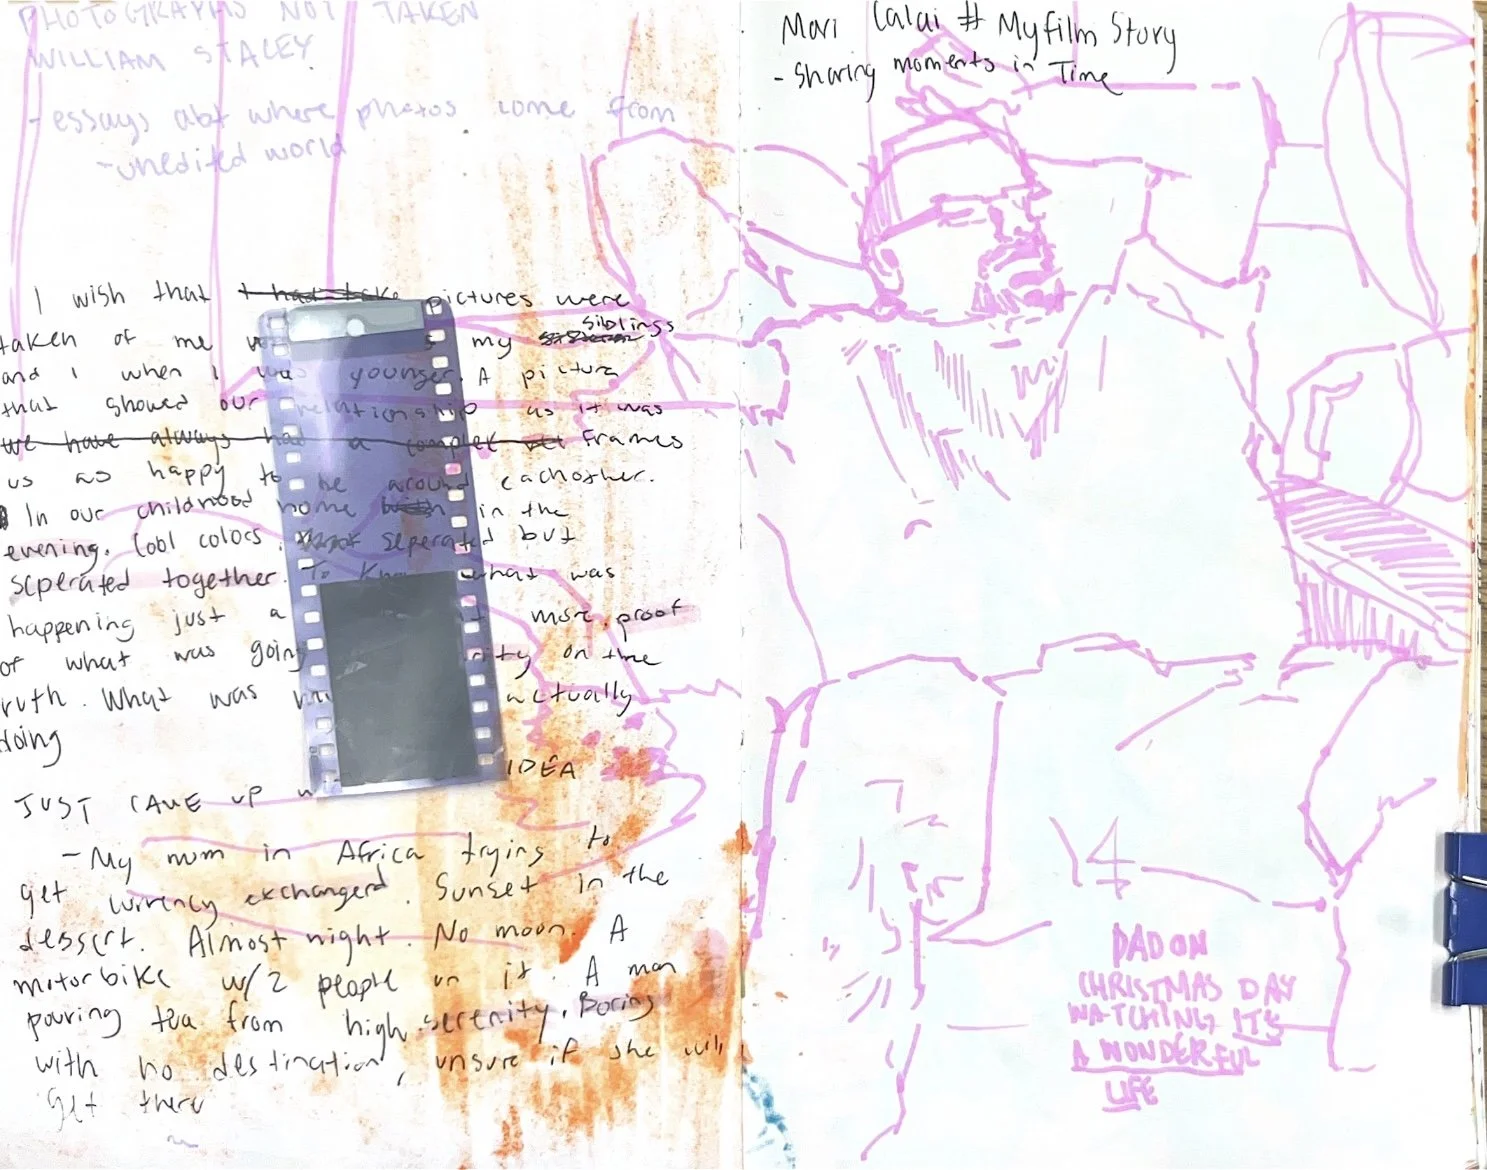 PHOTOGRAPHS NOT TAKEN
WILLIAM STALEY
- essays abt where photos come from
- unedited world
I wish that I had take pictures were
taken of me my siblings
and I when I was younger. A picture
that showed our relationship as it was
we have always had a complex frames
us as happy to be around eachother.
In our childhood home in the
evening. Cool colors. seperated but
seperated together. To know what was
happening just a more proof
of what was going on the
ruth. What was actually
doing
JUST CAME UP IDEA
- My mum in Africa trying to
get currency exchanged. Sunset in the
dessert. Almost night. No moon. A
motorbike w/2 people on it. A man
pouring tea from high. serenity. Boring
with no destination, unsure if she will
get there
Mari Calai # My film Story
- Sharing moments in Time
DAD ON
CHRISTMAS DAY
WATCHING IT'S
A WONDERFUL
LIFE